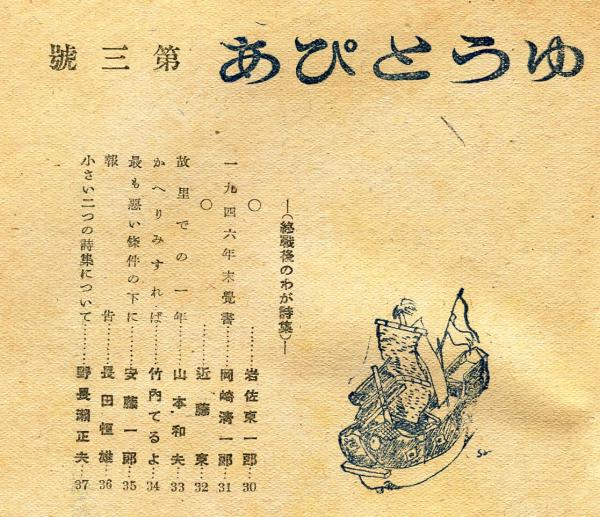 ゆうとぴあ 第三號
―(終戰後のわが詩集)―
○………岩佐東一郎…30
一九四六年末覺書………岡崎淸一郎…31
○………近藤東…32
故里での一年………山本和夫…33
かへりみすれば………竹內てるよ…34
最も惡い條件の下に………安藤一郎…35
報告………長田恒雄…36
小さい二つの詩集について………野長瀨正夫…37